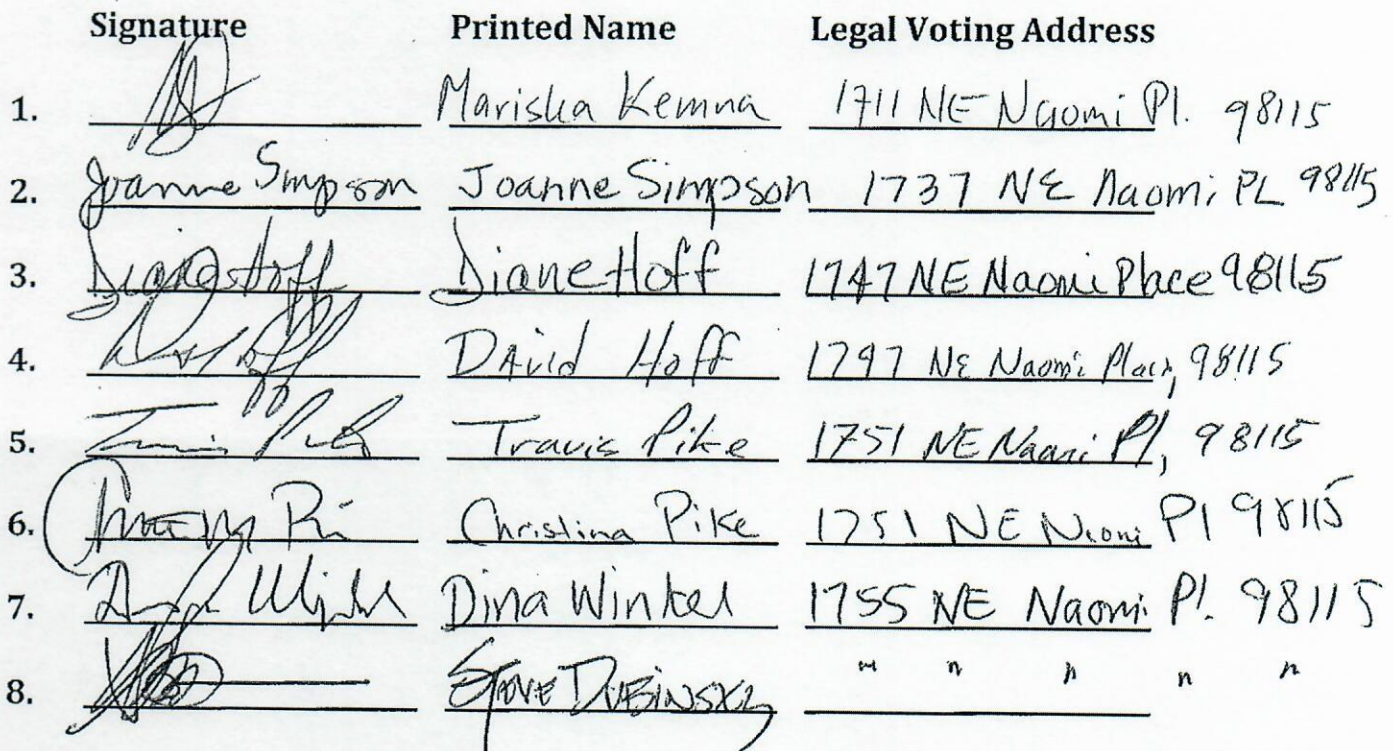 Signature Printed Name Legal Voting Address
1. Mariska Kemna 1711 NE Naomi Pl. 98115
2. Joanne Simpson Joanne Simpson 1737 NE Naomi PL 98115
3. Diane Hoff Diane Hoff 1747 NE Naomi Place 98115
4. David Hoff 1747 NE Naomi Place, 98115
5. Travis Pike 1751 NE Naomi Pl, 98115
6. Christina Pike 1751 NE Naomi Pl 98115
7. Dina Winkel 1755 NE Naomi Pl. 98115
8. Steve Dubinsky " " " " "